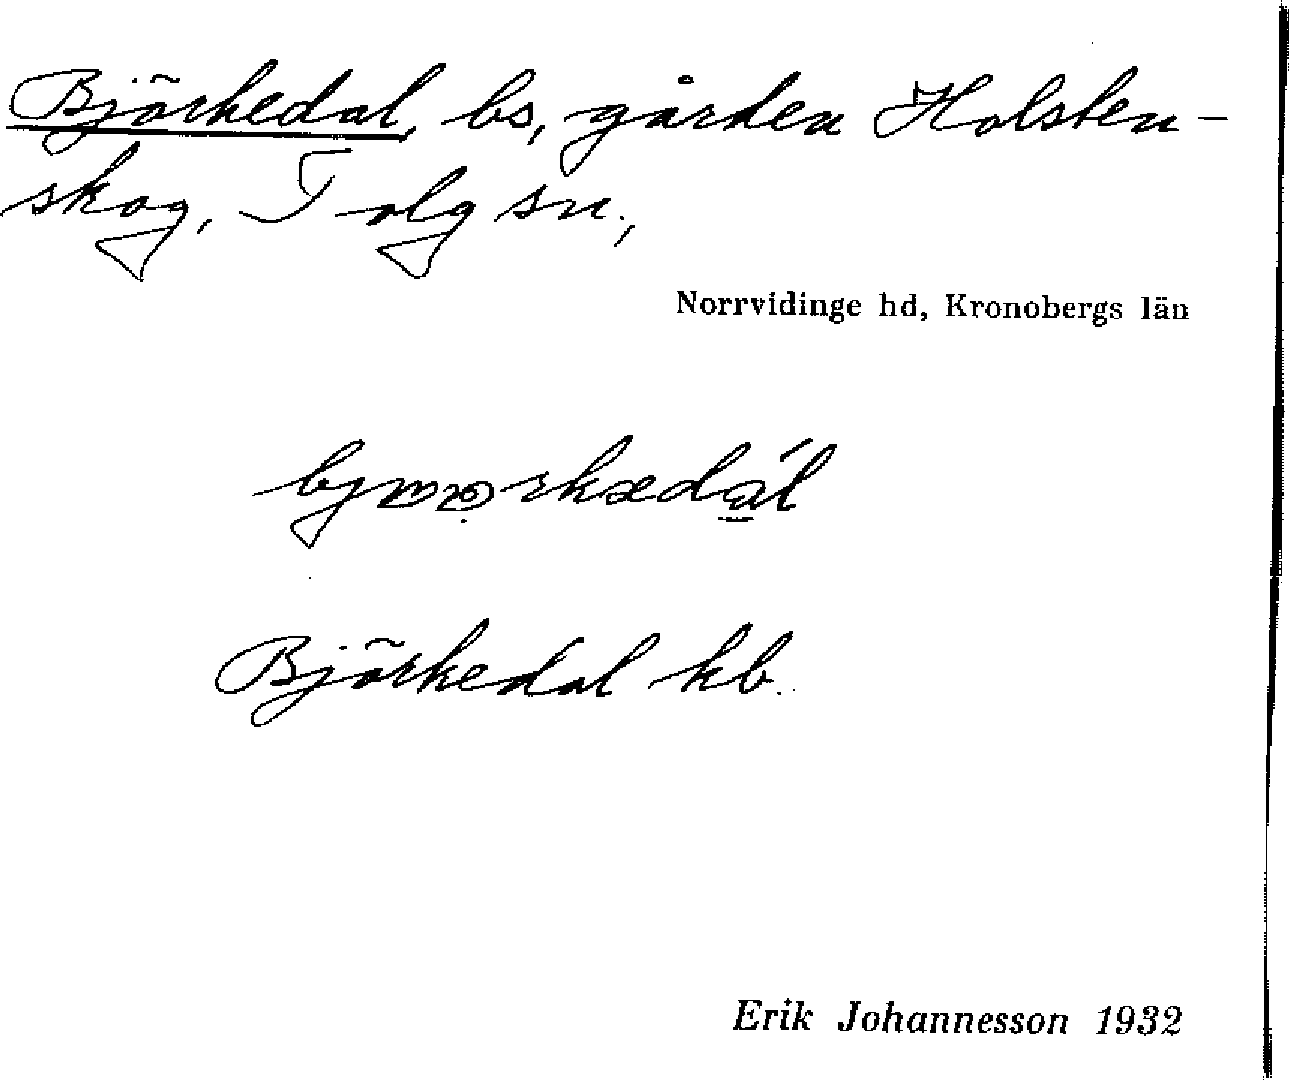 Björkedal, bs, gården Holsten-
skog, Tolg sn.,
Norrvidinge hd, Kronobergs län
Björkedal kb.
Erik Johannesson 1932